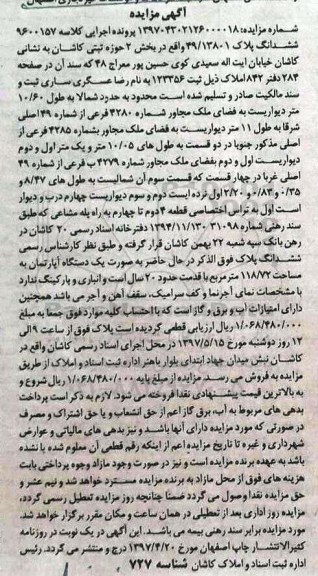 آگهی مزایده
شماره مزایده: ۱۳۹۷۰۴۳۰۲۱۲۶۰۰۰۰۱۸ پرونده اجرایی کلاسه ۹۶۰۰۱۵۷
ششدانگ پلاک ۴۹/۱۳۸۰۱ واقع در بخش ۲ حوزه ثبتی کاشان به نشانی
کاشان خیابان ایت اله سعیدی کوی حسین پور معراج ۴۸ که سند آن در صفحه
۲۸۴ دفتر ۸۴۲ املاک ذیل ثبت ۱۲۳۳۵۶ به نام رضا عسگری ساری ثبت و
سند مالکیت صادر و تسلیم شده است محدود به حدود شمالا به طول ۱۰/۶۰
متر دیواریست به فضای ملک مجاور شماره ۴۲۸۰ فرعی از شماره ۴۹ اصلی
شرقا به طول ۱۱ متر دیواریست به فضای ملک مجاور بشماره ۴۲۸۵ فرعی از
اصلی مذکور جنوبا در دو قسمت به طول های ۱۰/۰۵ متر و یک متر اول و دوم
دیواریست اول و دوم بفضای ملک مجاور شماره ۴۲۷۹ ب فرعی از شماره ۴۹
اصلی غربا در چهار قسمت که قسمت سوم آن شمالیست به طول های ۸/۴۷ و
۰/۳۵ و ۰/۸۳ و ۲/۲۰ اول نرده ایست دوم و سوم دیواریست چهارم درب و دیوار
است اول به تراس اختصاصی قطعه ۴ دوم تا چهارم به راه پله مشاعی که طبق
سند رهنی شماره ۳۱۰۹۸ ۱۳۹۴/۱۱/۱۳۰ دفترخانه اسناد رسمی ۲۰ کاشان در
رهن بانک سپه شعبه ۲۲ بهمن کاشان قرار گرفته و طبق نظر کارشناس رسمی
ششدانگ پلاک فوق الذکر در حال حاضر به صورت یک دستگاه آپارتمان به
مساحت ۱۱۸/۷۲ مترمربع با قدمت حدود ۲۰ سال است و انباری و پارکینگ ندارد
با مشخصات نمای آجرنما و کف سرامیک، سقف آهن و آجر می باشد همچنین
دارای امتیازات آب و برق و گاز است که با احتساب کلیه موارد فوق جمعا به مبلغ
۱/۰۶۸/۴۸۰/۰۰۰ ریال ارزیابی قطعی گردیده است پلاک فوق از ساعت ۹ الی
۱۲ روز دوشنبه مورخ ۱۳۹۷/۵/۱۵ در محل اجرای اسناد رسمی کاشان واقع در
کاشان نبش میدان جهاد ابتدای بلوار باهنر اداره ثبت اسناد و املاک از طریق
مزایده به فروش می رسد. مزایده از مبلغ پایه ۱/۰۶۸/۴۸۰/۰۰۰ ریال شروع و
به بالاترین قیمت پیشنهادی نقدا فروخته می شود. لازم به ذکر است پرداخت
بدهی های مربوط به آب، برق گاز اعم از حق انشعاب و یا حق اشتراک و مصرف
در صورتی که مورد مزایده دارای آنها باشد و نیز بدهی های مالیاتی و عوارض
شهرداری و غیره تا تاریخ مزایده اعم از اینکه رقم قطعی آن معلوم شده یا نشده
باشد به عهده برنده مزایده است و نیز در صورت وجود مازاد وجوه پرداختی بابت
هزینه های فوق از محل مازاد به برنده مزایده مسترد خواهد شد و نیم عشر و
حق مزایده نقدا وصول می گردد ضمنا چنانچه روز مزایده تعطیل رسمی گردد،
مزایده روز اداری بعد از تعطیلی در همان ساعت و مکان مقرر برگزار خواهد شد.
مورد مزایده برابر سند رهنی بیمه می باشد. این آگهی در یک نوبت در روزنامه
کثیرالانتشار چاپ اصفهان مورخ ۱۳۹۷/۴/۲۰ درج و منتشر می گردد. رئیس
اداره ثبت اسناد و املاک کاشان شناسه ۷۲۷